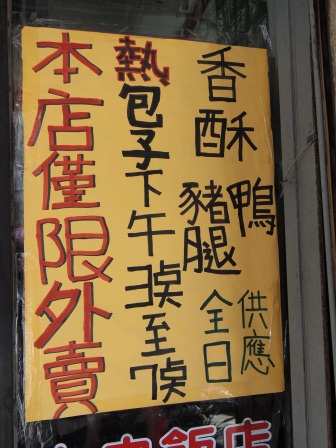 香酥鴨
豬腿
全日供應
熱包子下午3点至7点
本店僅限外賣
飯店